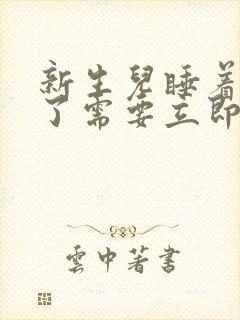 新生兒睡着
了需要立即
雲中著書